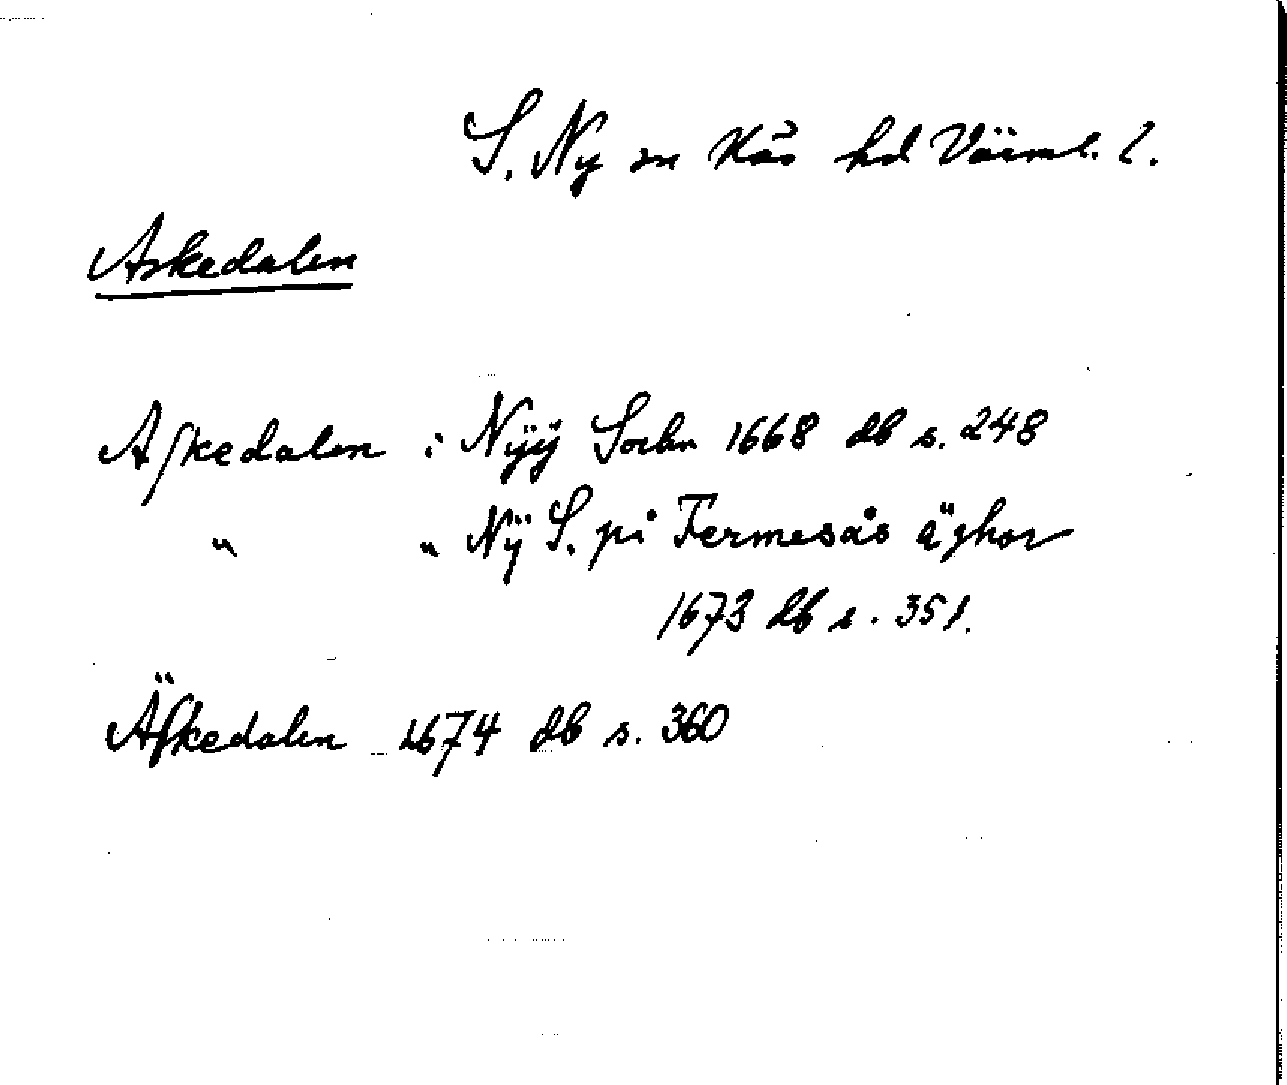 S. Ny sn Näs hd Värml. l.
Askedalen
Aſkedalen i Nÿÿ Sochn 1668 db s. 248
" " Nÿ S. på Fermesås äghor
1673 db s. 351.
Äſkedalen 1674 db s. 360